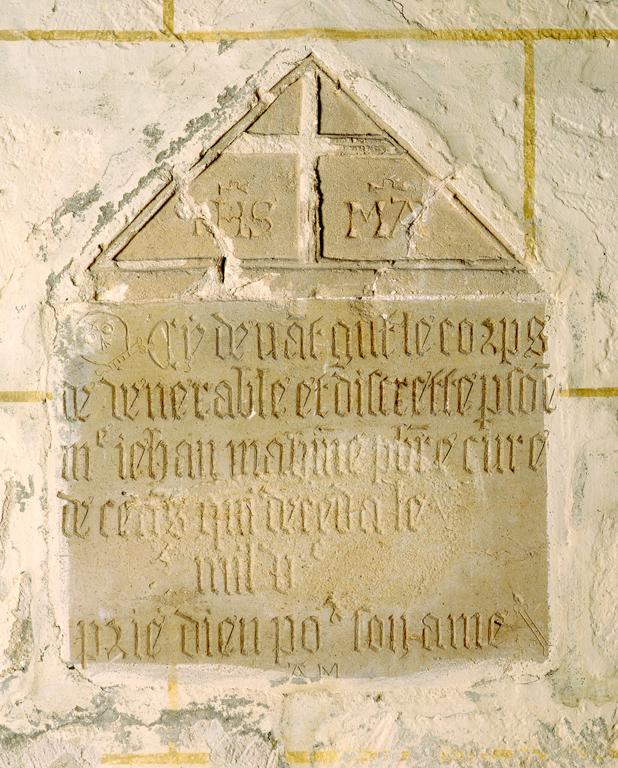 IHS MA
Cy devāt gist le corps
de venerable et discrette psōe
mᵉ iehan mahyme pb̄re cure
de ceās qui deceda le
mil vᶜ
priē dieu poʳ son ame
A M